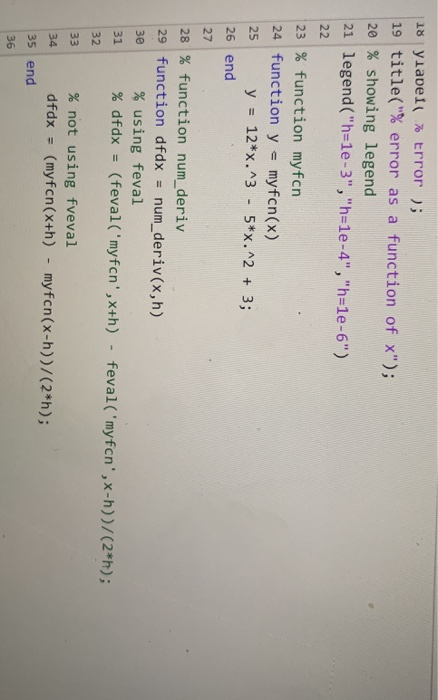 18 ylabel( % Error );
19 title("% error as a function of x");
20 % showing legend
21 legend("h=1e-3","h=1e-4","h=1e-6")
22
23 % function myfcn
24 function y = myfcn(x)
25 y = 12*x.^3 - 5*x.^2 + 3;
26 end
27
28 % function num_deriv
29 function dfdx = num_deriv(x,h)
30 % using feval
31 % dfdx = (feval('myfcn',x+h) - feval('myfcn',x-h))/(2*h);
32
33 % not using fveval
34 dfdx = (myfcn(x+h) - myfcn(x-h))/(2*h);
35 end
36